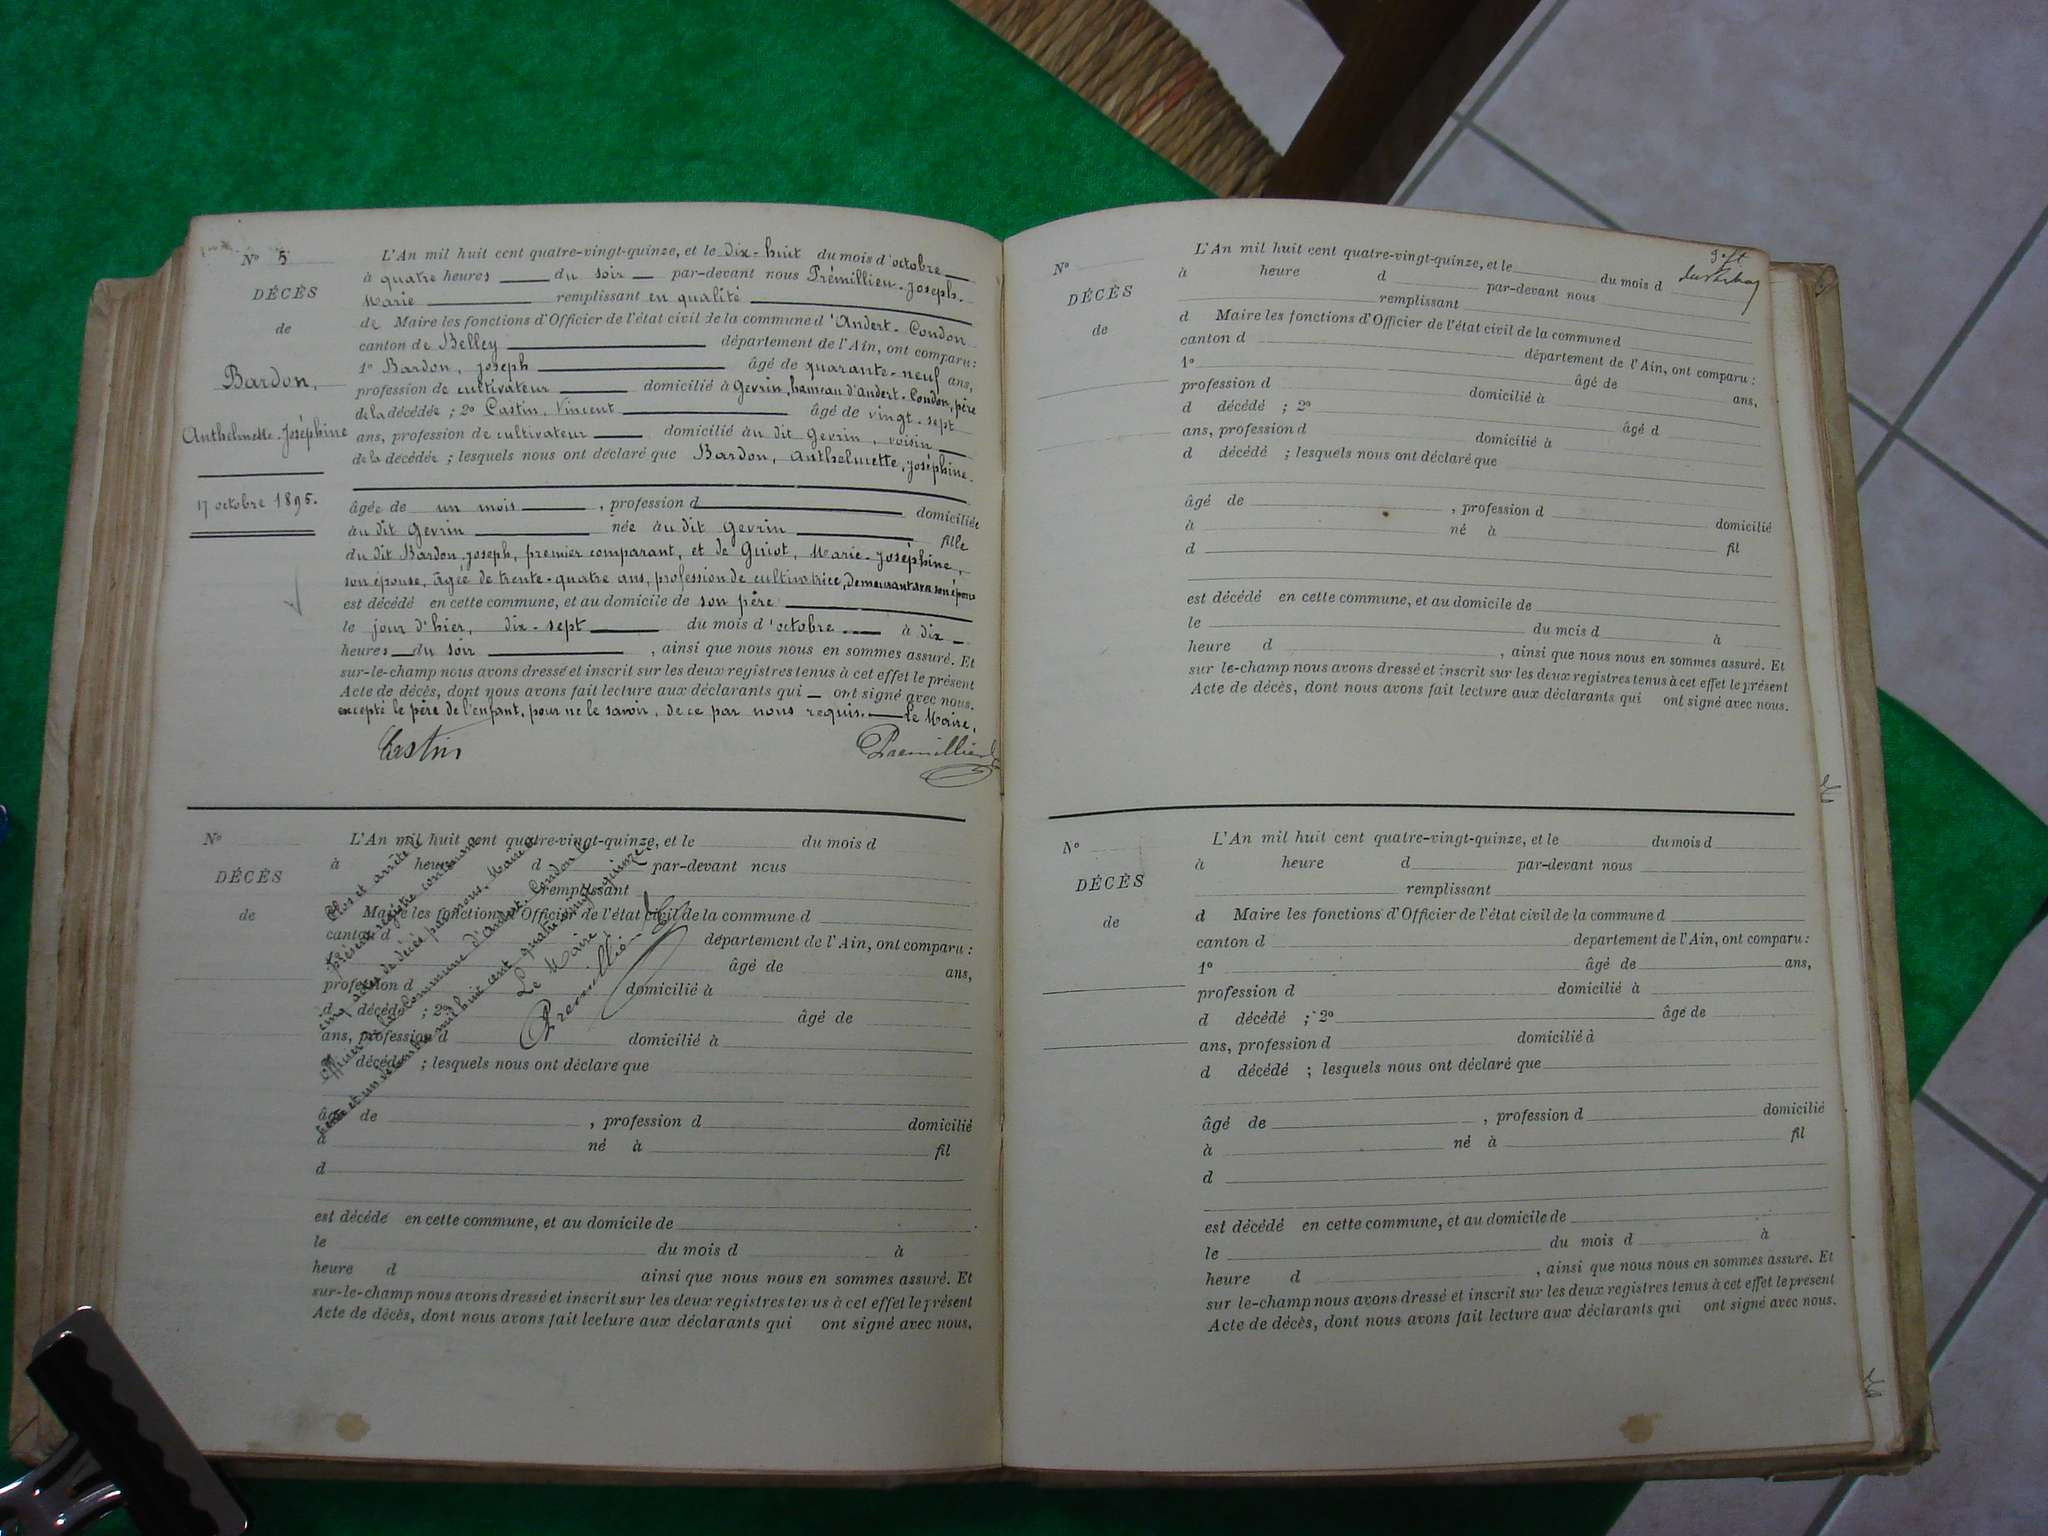 N° 5
DÉCÈS
de
Bardon,
Anthelmette-Joséphine
17 octobre 1895.
L'An mil huit cent quatre-vingt-quinze, et le dix-huit du mois d'octobre
à quatre heures du soir par-devant nous Prémillieu-Joseph-
Marie remplissant en qualité
de Maire les fonctions d'Officier de l'état civil de la commune d'Andert-Condon
canton de Belley département de l'Ain, ont comparu:
1° Bardon, Joseph âgé de quarante-neuf ans,
profession de cultivateur domicilié à Gevrin, hameau d'Andert-Condon, père
de la décédée ; 2° Castin, Vincent âgé de vingt-sept
ans, profession de cultivateur domicilié au dit Gevrin, voisin
de la décédée ; lesquels nous ont déclaré que Bardon, Anthelmette, Joséphine.
âgée de un mois , profession d domiciliée
au dit Gevrin née au dit Gevrin fille
du dit Bardon Joseph, premier comparant, et de Guiot, Marie-Joséphine,
son épouse, âgée de trente-quatre ans, profession de cultivatrice, demeurant avec son époux
est décédé en cette commune, et au domicile de son père
le jour d'hier, dix-sept du mois d'octobre à dix
heures du soir , ainsi que nous nous en sommes assuré. Et
sur-le-champ nous avons dressé et inscrit sur les deux registres tenus à cet effet le présent
Acte de décès, dont nous avons fait lecture aux déclarants qui ont signé avec nous.
excepté le père de l'enfant, pour ne le savoir, de ce par nous requis. Le Maire,
Castin Premillieu
N°
DÉCÈS
de
L'An mil huit cent quatre-vingt-quinze, et le du mois d
à heure d par-devant nous
remplissant
Maire les fonctions d'Officier de l'état civil de la commune d
canton d département de l'Ain, ont comparu:
âgé de ans,
profession d domicilié à
d décédé ; 2° âgé de
ans, profession d domicilié à
décédé ; lesquels nous ont déclaré que
âgé de , profession d domicilié
à né à fil
d
est décédé en cette commune, et au domicile de
le du mois d à
heure d ainsi que nous nous en sommes assuré. Et
sur-le-champ nous avons dressé et inscrit sur les deux registres tenus à cet effet le présent
Acte de décès, dont nous avons fait lecture aux déclarants qui ont signé avec nous.
Clos et arrêté le
présent registre contenant
cinq actes de décès par nous, Maire
officier de la commune d'Andert-Condon le
trente et un décembre mil huit cent quatre-vingt-quinze.
Le Maire,
Premillieu
N°
DÉCÈS
de
L'An mil huit cent quatre-vingt-quinze, et le du mois d
à heure d par-devant nous
remplissant
d Maire les fonctions d'Officier de l'état civil de la commune d
canton d département de l'Ain, ont comparu:
1° âgé de ans,
profession d domicilié à
d décédé ; 2° âgé d
ans, profession d domicilié à
d décédé ; lesquels nous ont déclaré que
âgé de , profession d domicilié
à né à fil
d
est décédé en cette commune, et au domicile de
le du mois d à
heure d , ainsi que nous nous en sommes assuré. Et
sur le-champ nous avons dressé et inscrit sur les deux registres tenus à cet effet le présent
Acte de décès, dont nous avons fait lecture aux déclarants qui ont signé avec nous.
N°
DÉCÈS
de
L'An mil huit cent quatre-vingt-quinze, et le du mois d
à heure d par-devant nous
remplissant
d Maire les fonctions d'Officier de l'état civil de la commune d
canton d département de l'Ain, ont comparu:
1° âgé de ans,
profession d domicilié à
d décédé ; 2° âgé de
ans, profession d domicilié à
d décédé ; lesquels nous ont déclaré que
âgé de , profession d domicilié
à né à fil
d
est décédé en cette commune, et au domicile de
le du mois d à
heure d , ainsi que nous nous en sommes assuré. Et
sur le-champ nous avons dressé et inscrit sur les deux registres tenus à cet effet le présent
Acte de décès, dont nous avons fait lecture aux déclarants qui ont signé avec nous.